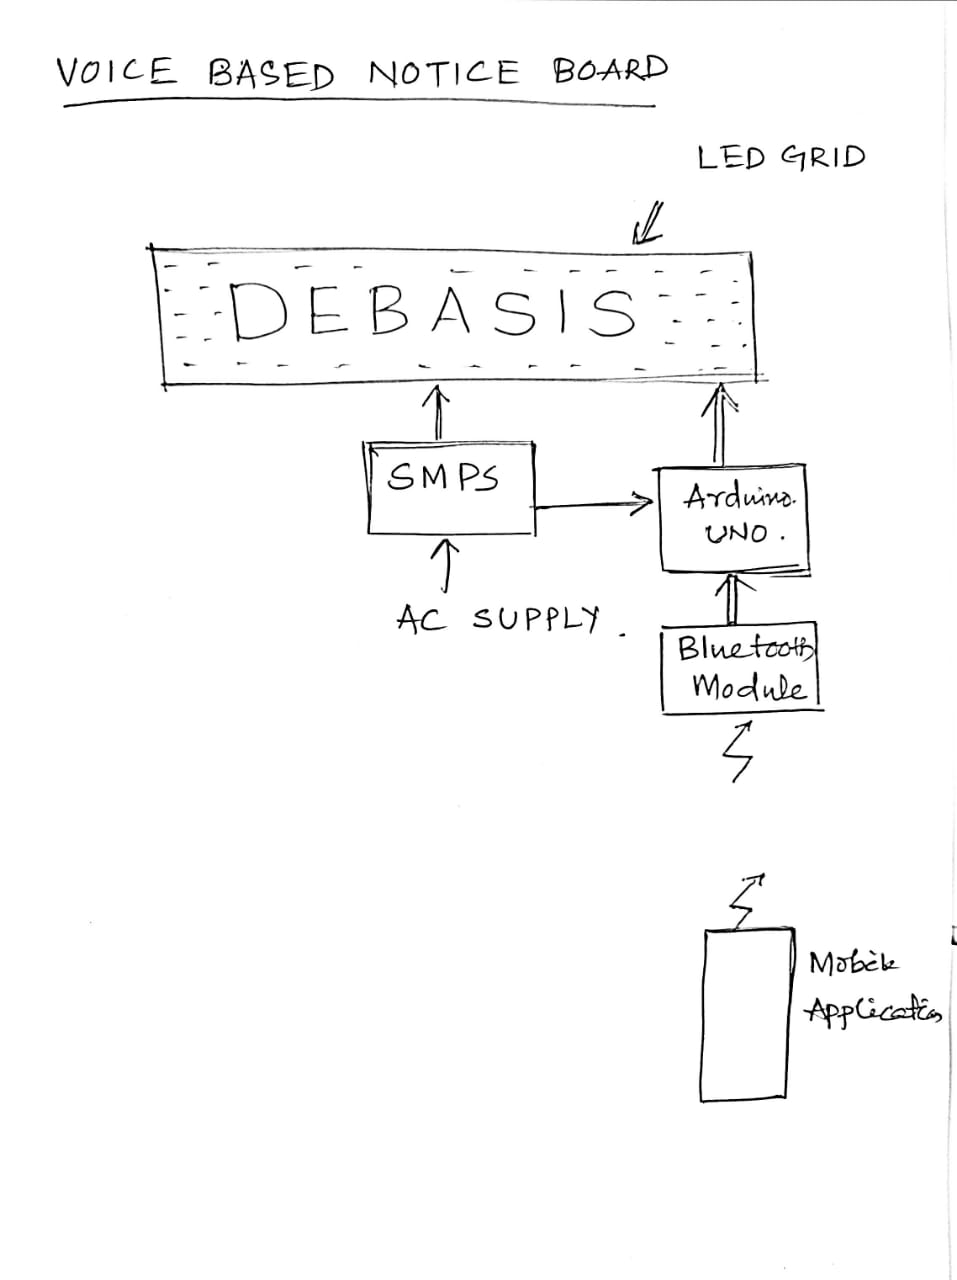 VOICE BASED NOTICE BOARD
LED GRID
DEBASIS
SMPS
Arduino.
UNO.
AC SUPPLY.
Bluetooth
Module
Mobile
Application